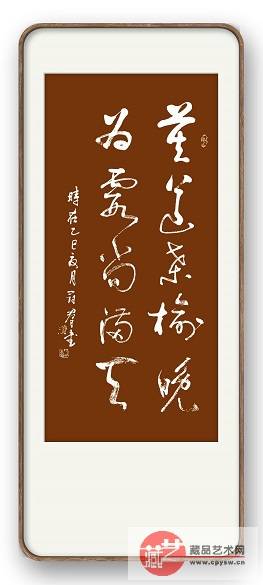 莫道桑榆晚
为霞尚满天
時在乙巳夏月
藏艺
藏品艺术网
www.cpysw.cn